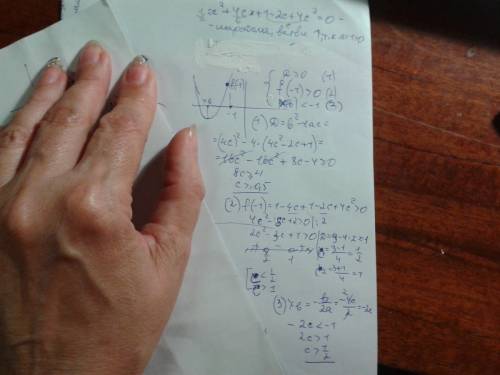 x² + 4cx + 1 - 2c + 4c² = 0 -
- парабола, ветви ↑, т.к. a=1>0
f(-1)
x₀
-1
{ D≥0 (1)
f(-1)>0 (2)
x₀<-1 (3)
(1) D=b²-4ac=
=(4c)²-4·(4c²-2c+1)=
=16c²-16c²+8c-4≥0
8c≥4
c≥0,5
(2) f(-1)=1-4c+1-2c+4c²>0
4c²-6c+2>0 |:2
2c²-3c+1>0 | D=9-4·2·1=1
c₁=(3-1)/4=1/2
c₂=(3+1)/4=1
1/2 1
[ c<1/2
c>1
(3) x₀=-b/2a=-4c/2=-2c
-2c<-1
2c>1
c>1/2